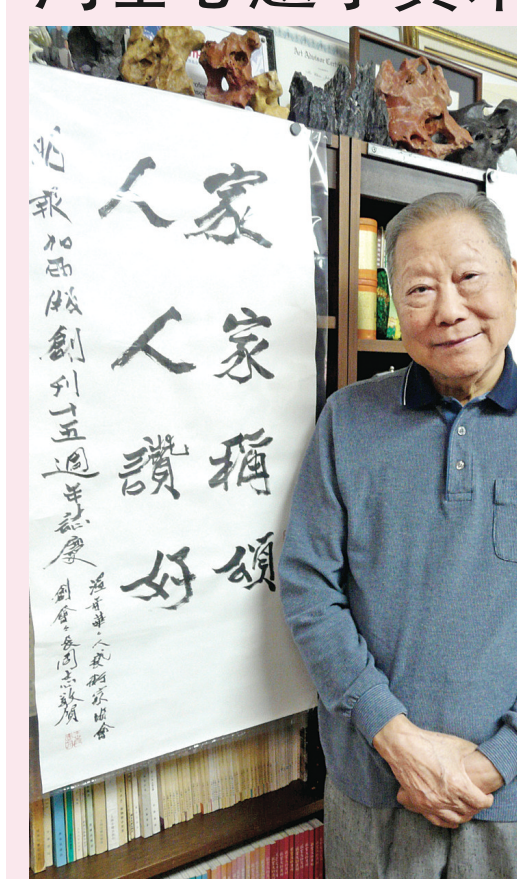 家家稱頌
人人讚好
明報加西版創刊十五週年誌慶
溫哥華々人藝術家協會
創會々長周士心敬賀